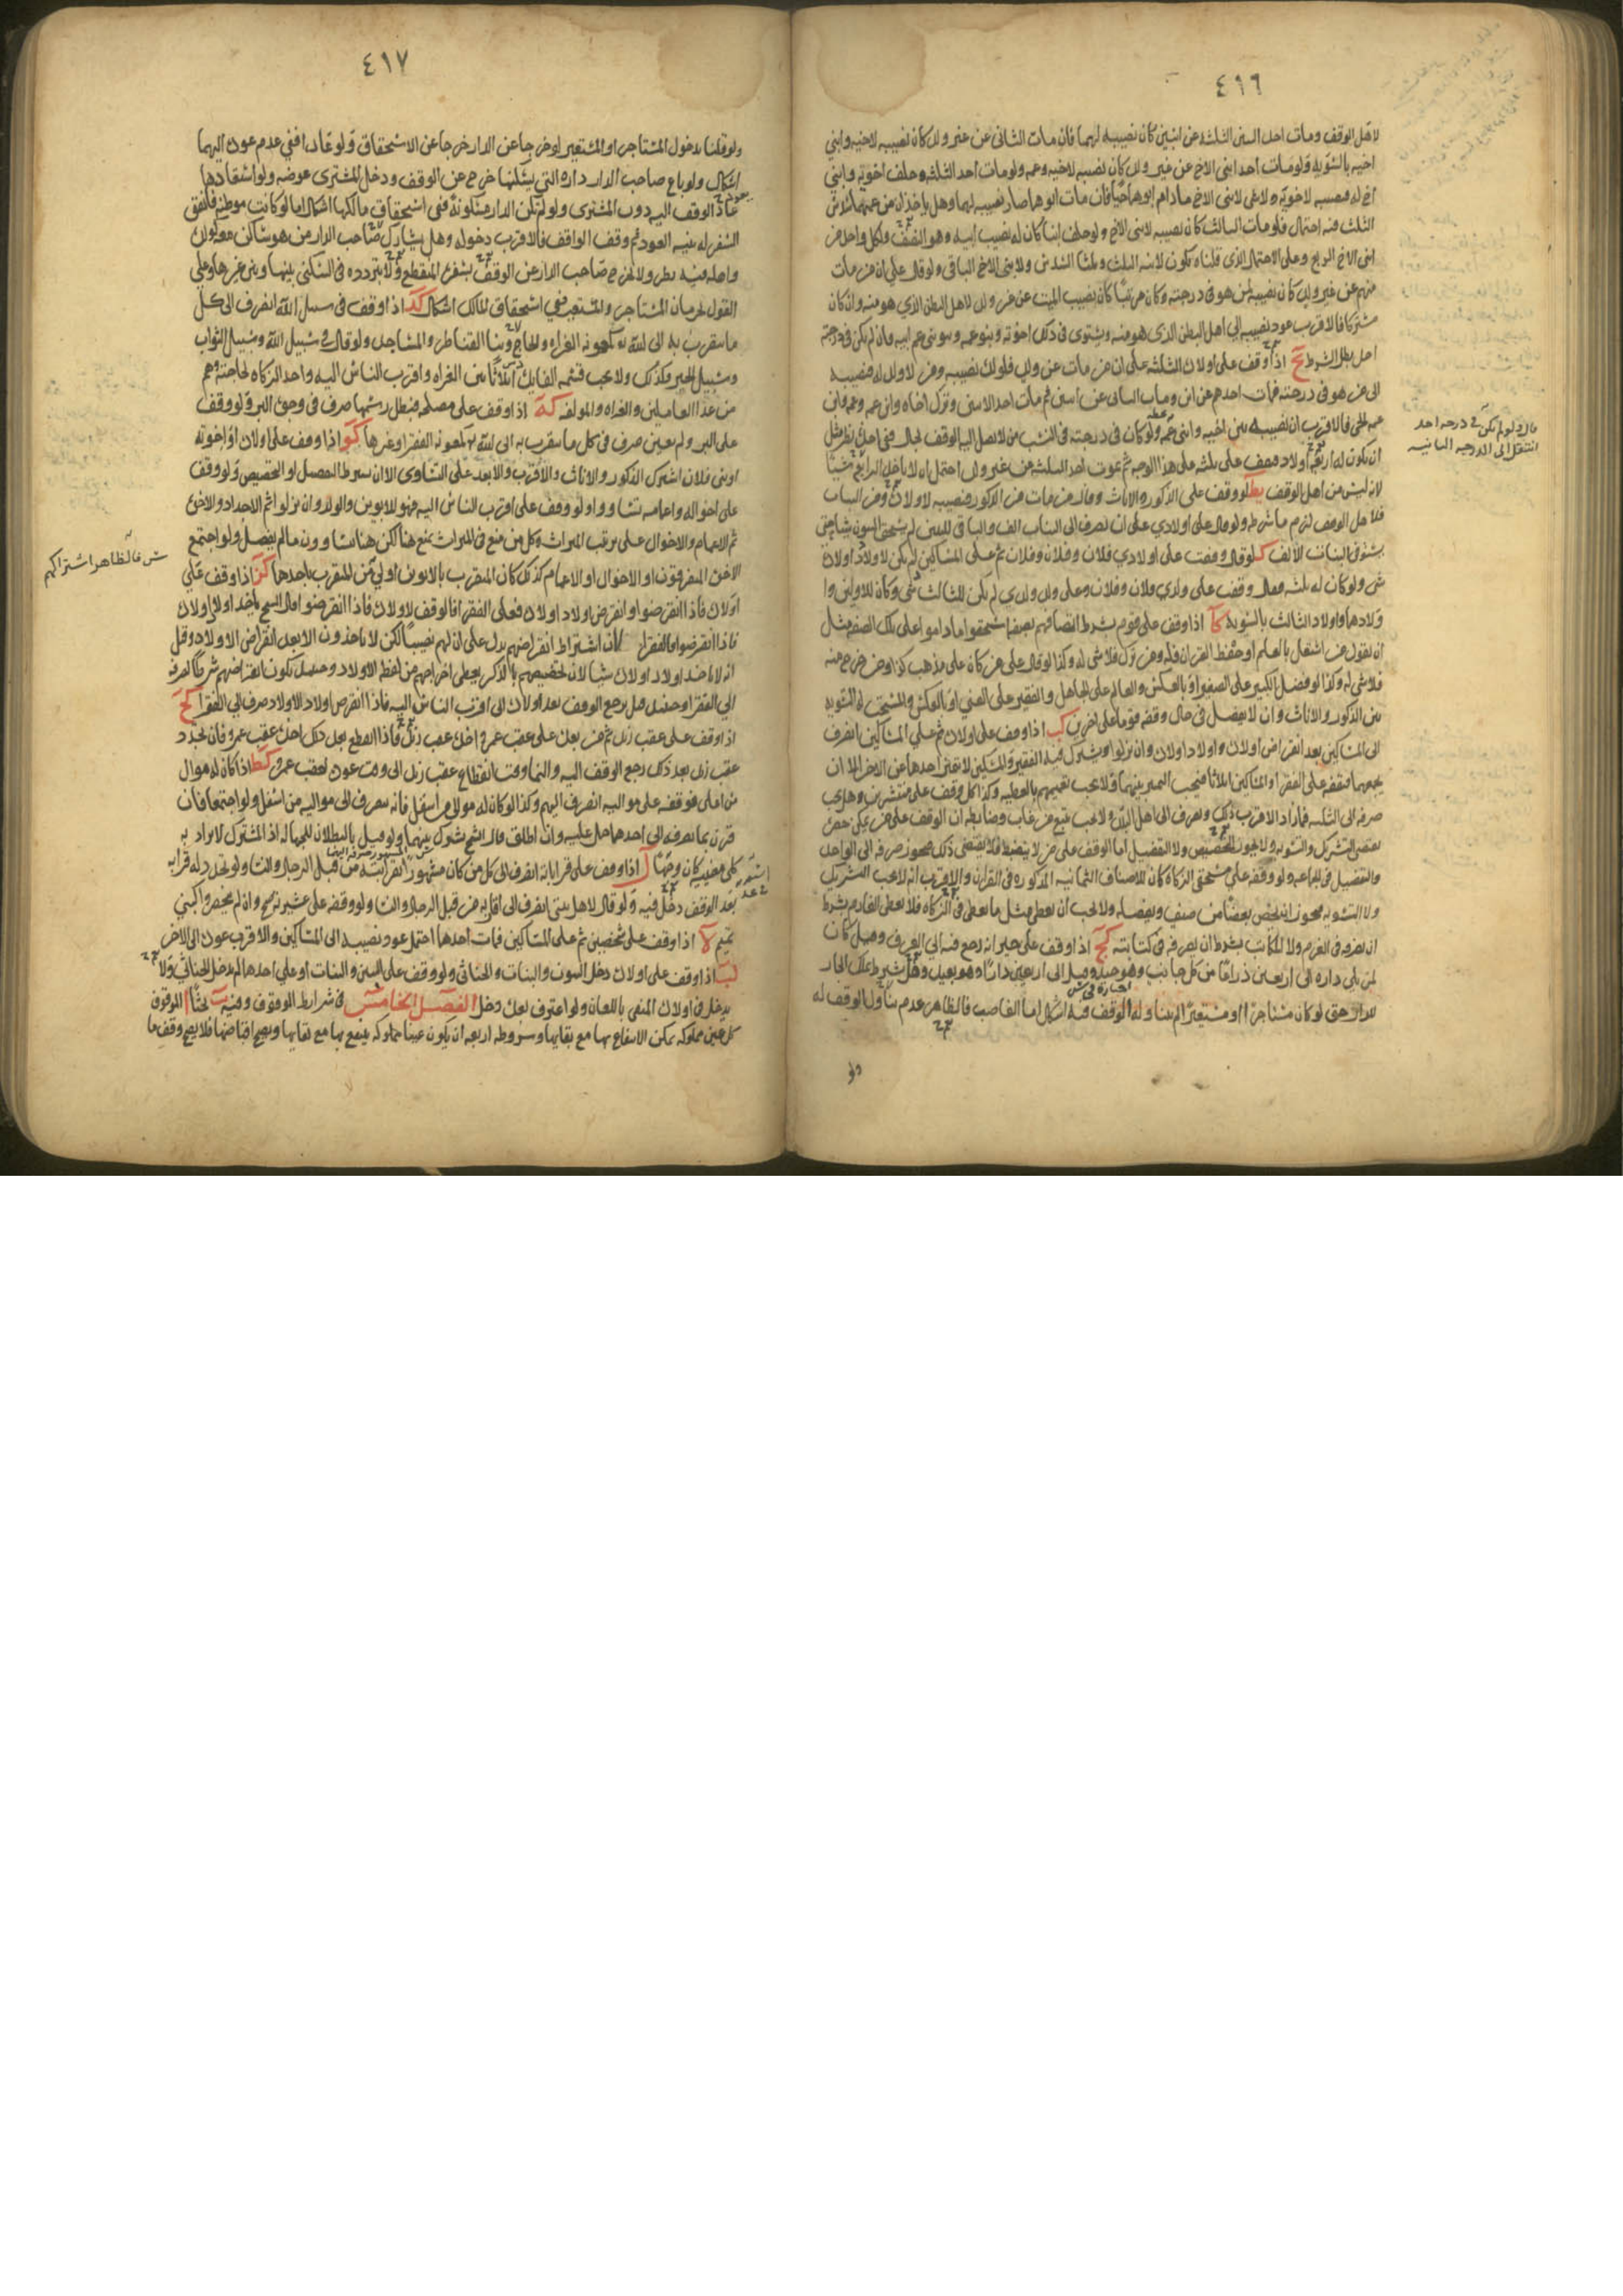 ٤١٦
لاهل الوقف ومات احد البنين الثلثة عن ابنين كان نصيبه لهما فان مات الثاني عن غير ولد كان نصيبه لاخيه وابني
اخيه بالسوية ولو مات احد ابني الاخ عن غير ولد كان نصيبه لاخيه وعمه ولو مات احد الثلثة وخلف اخويه وابني
اخ له فنصيبه لاخويه ولا شي لابني الاخ مادام ابوهما حيا فان مات ابوهما صار نصيبه لهما وهل ياخذان من عمهما ثلاث
الثلث فيه احتمال فلو مات الثالث كان نصيبه لابني الاخ ولو خلف ابنا كان له نصيب ابيه وهو النصف ولكل واحد من
ابني الاخ الربع وعلى الاحتمال الذي قلناه يكون لابنه الثلث وثلثا السدس ولابني الاخ الباقي ولو قال على ان من مات
منهم عن غير ولد كان نصيبه لمن هو في درجته وكان مرتبا كان نصيب الميت عن غير ولد لاهل البطن الذي هو منه وان كان
مشتركا فالاقرب عود نصيبه الى اهل البطن الذي هو منه ويستوي في ذلك اخوته وبنو عمه وبنو بني عم ابيه وان لم يكن في درجته
احد بطل الشرط يح اذا وقف على اولاده الثلثة على ان من مات عن ولد فلولده نصيبه ومن لا ولد له فنصيبه
الى من هو في درجته فمات احدهم عن ابن ومات الثاني عن ابنين ثم مات احد الابنين وترك اخاه وابن عمه وعمه وابن
عمه لحي فالاقرب ان نصيبه بين اخيه وابني عمه ولو كان في درجته في النسب من لا يصل اليه الوقف بحال ففي اخذه نظر مثل
ان يكون له اربعة اولاد فيقف على ثلثة على هذا الوجه ثم يموت احد الثلثة من غير ولد احتمل ان لا ياخذ الرابع شيئا
لانه ليس من اهل الوقف يط لو وقف على الذكور والاناث وقال من مات من الذكور فنصيبه لاولاده ومن البنات
فلاهل الوقف لزم ما شرطه ولو قال على اولادي على ان يصرف الى البنات الف والباقي للبنين لم يستحق البنون شيئا حتى
يستوفي البنات الالف ك لو قال وقفت على اولادي فلان وفلان وفلان ثم على المساكين لم يكن لاولاد اولاده
شي ولو كان له ثلثة فقال وقفت على ولدي فلان وفلان وعلى ولد ولدي لم يكن للثالث شي وكان للاولين وا
ولادهما واولاد الثالث بالسوية كا اذا وقف على قوم بشرط اتصافهم بصفة استحقوا ما داموا على تلك الصفة مثل
ان يقول من اشتغل بالعلم او حفظ القران فله ومن ترك فلا شي له وكذا لو قال على من كان على مذهب كذا ومن خرج منه
فلا شي له وكذا لو فضل الكبير على الصغير او بالعكس والعالم على الجاهل والفقير على الغني او بالعكس والمستحب له التسوية
بين الذكور والاناث وان لا يفضل في حال وقفه قوما على اخرين كب اذا وقف على اولاده ثم على المساكين انصرف
الى المساكين بعد انقراض اولاده واولاد اولاده وان نزلوا ويشترك فيه الفقير والمسكين لا يتميز احدهما عن الاخر الا ان
يجمعهما فيقفه على الفقراء والمساكين اثلاثا فيجب التمييز بينهما ولا يجب تعميمهم بالعطية وكذا كل وقف على منتشرين وهل يجب
صرفه الى الثلثة فما زاد الاقرب ذلك ويصرف الى اهل البلد ولا يجب تتبع من غاب وضابطه ان الوقف على من يمكن حصره
يقتضي التشريك والتسوية ولا يجوز التخصيص ولا التفضيل اما الوقف على من لا ينضبط فلا يقتضي ذلك فيجوز صرفه الى الواحد
والتفضيل في الجماعة ولو وقفه على مستحقي الزكاة كان للاصناف الثمانية المذكورة في القران والاقرب انه لا يجب التشريك
ولا التسوية فيجوز ان يخص بعضا من صنف ويفضله ولا يجب ان يعطى مثل ما يعطى في الزكاة فلا يعطى الغارم بشرط
ان يصرفه في الغرم ولا المكاتب بشرط ان يصرفه في كتابته كج اذا وقف على جيرانه رجع فيه الى العرف وقيل كان
لمن يلي داره الى اربعين ذراعا من كل جانب وهو جيد وقيل الى اربعين دارا وهو بعيد وهل يشترط ملك الجار
للدار حتى لو كان مستاجرا او مستعيرا لم يتناوله الوقف فيه اشكال اما الغاصب فالظاهر عدم تناول الوقف له
ولو
قال ولو لم يكن في درجه احد
انتقل الى الدرجه الثانيه
٤١٧
ولو قلنا بدخول المستاجر او المستعير لو خرجا عن الدار خرجا عن الاستحقاق ولو عادا ففي عدم عوده اليهما
اشكال ولو باع صاحب الدار داره التي يسكنها خرج عن الوقف ودخل المشتري عوضه ولو استعادها
عاد الوقف اليه دون المشتري ولو لم تكن الدار مسكونة ففي استحقاق مالكها اشكال اما لو كانت موطنه فاتفق
السفر له بنية العود ثم وقف الواقف فالاقرب دخوله وهل يشارك صاحب الدار من هو ساكن معه كولده
واهله فيه نظر ولا يخرج صاحب الدار عن الوقف بسفره المنقطع ولا بتردده في السكنى بينها وبين غيرها وعلى
القول بحرمان المستاجر والمستعير ففي استحقاق المالك اشكال كد اذا وقف في سبيل الله انصرف الى كل
ما يتقرب به الى الله تع كمعونه الغزاة والحاج وبناء القناطر والمساجد ولو قال في سبيل الله وسبيل الثواب
وسبيل الخير فكذلك ولا يجب قسمة الفايدة اثلاثا بين الغزاة واقرب الناس اليه واخذ الزكاة لحاجته وهم
من عدا العاملين والغزاة والمولفة كه اذا وقف على مصلحة فبطل رسمها صرف في وجوه البر ولو وقف
على البر ولم يعين صرف في كل ما يتقرب به الى الله تع كمعونة الفقرا وغيرها كو اذا وقف على اولاده او اخوته
او بني فلان اشترك الذكور والاناث والاقرب والابعد على التساوي الا ان يشترط التفضيل او التخصيص ولو وقف
على اخواله واعمامه تساووا ولو وقف على اقرب الناس اليه فهو للابوين والولد وان نزلوا ثم الاجداد والاخوة
ثم الاعمام والاخوال على ترتيب الميراث وكل من منع في الميراث يمنع هنا لكن هنا يتساوون ما لم يفضل ولو اجتمع
الاخوة المتفرقون او الاخوال او الاعمام كذلك كان المتقرب بالابوين اولى من المتقرب باحدهما كز اذا وقف على
اولاده فاذا انقرضوا وانقرض اولاد اولاده فعلى الفقرا فالوقف لاولاده فاذا انقرضوا قال الشيخ ياخذ اولاد اولاده
فاذا انقرضوا فالفقرا لان اشتراط انقراضهم يدل على ان لهم نصيبا لكن لا ياخذون الا بعد انقراض الاولاد وقيل
انه لا ياخذ اولاد اولاده شيئا لان تخصيصهم بالذكر يعطي اخراجهم من لفظ الاولاد وحينئذ يكون انقراضهم شرطا لصرفه
الى الفقرا وحينئذ هل يرجع الوقف بعد اولاده الى اقرب الناس اليه فاذا انقرض اولاد الاولاد صرف الى الفقرا كح
اذا وقف على عقب زيد ثم من بعده على عقب عمرو اخذه عقب زيد فاذا انقطع بعد ذلك اخذه عقب عمرو فان تجدد
عقب زيد بعد ذلك رجع الوقف اليه والنما وقت انقطاع عقب زيد الى وقت عوده لعقب عمرو كط اذا كان له موال
من اعلى فوقفه على مواليه انصرف اليهم وكذا لو كان له موالي من اسفل فانه يصرف الى مواليه من اسفل ولو اجتمعا فان
قرن بما يصرف الى احدهما حمل عليه وان اطلق قال الشيخ يشرك بينهما ولو قيل بالبطلان للجهالة اذ المشترك لا يراد به
كلى معنييه كان وجها ل اذا وقف على قرابته انصرف الى كل من كان مشهورا بقرابته من قبل الرجال والنسا ولو تجدد له قرابة
بعد الوقف دخل فيه ولو قال لاهل بيتي انصرف الى اقاربه من قبل الرجال والنسا ولو وقفه على عشيرته صح وان لم ينحصروا كبني
تميم لا اذا وقف على شخصين ثم على المساكين فمات احدهما احتمل عود نصيبه الى المساكين والاقرب عوده الى الاخر
لب اذا وقف على اولاده دخل البنون والبنات والخناثى ولو وقف على البنين والبنات او على احدهما لم يدخل الخناثى ولا
يدخل في اولاده المنفي باللعان ولو اعترف بعده دخل الفصل الخامس في شرايط الموقوف وفيه بحثا ا الموقوف
كل عين مملوكة يمكن الانتفاع بها مع بقايها وشروطه اربعة ان يكون عينا مملوكة ينتفع بها مع بقايها ويصح اقباضها فلا يصح وقف ما
فالظاهر اشتراكهم